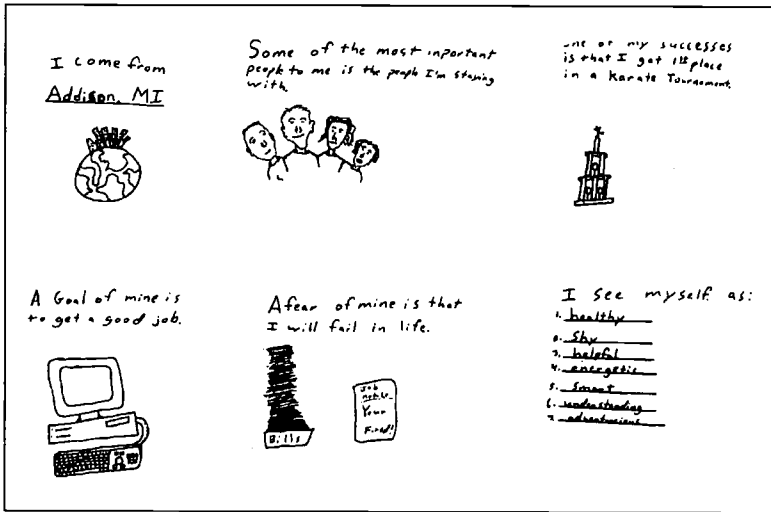 I come from
Addison, MI
Some of the most inportant
people to me is the people I'm staying
with.
one of my successes
is that I got 1st place
in a Karate Tournament.
A Goal of mine is
to get a good job.
A fear of mine is that
I will fail in life.
Bills
Job
Your
Fired!!
I see myself as:
1. healthy
2. Shy
3. helpful
4. energetic
5. Smart
6. understanding
7. adventurious